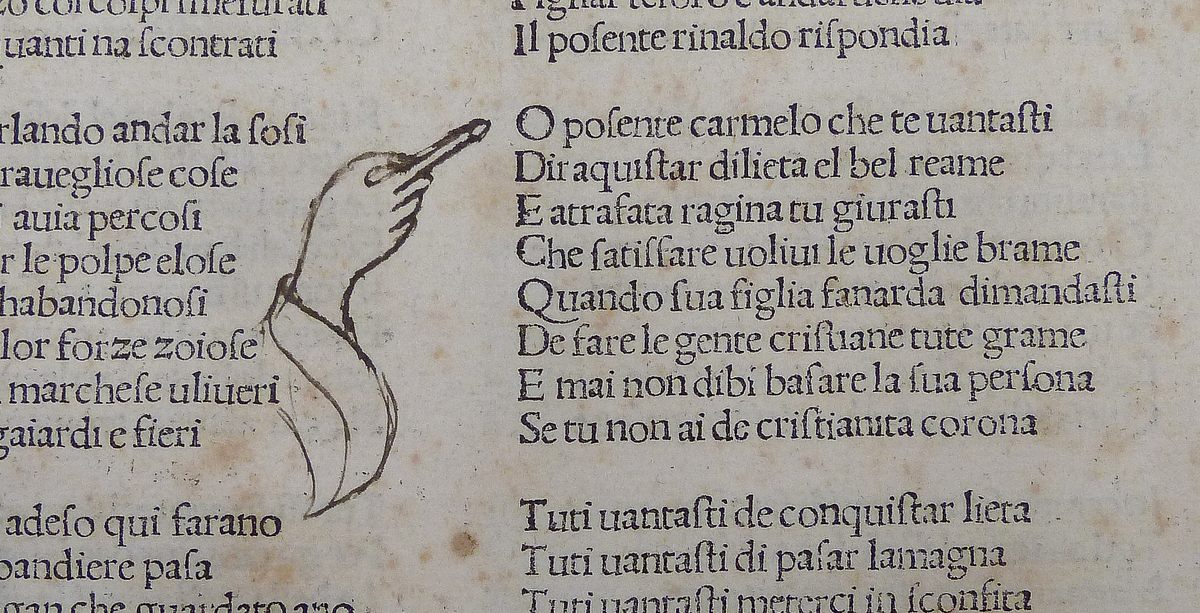 na ſcontrati
andar la ſoſi
coſe
auia percoſi
le polpe eloſe
habandonoſi
lor forze zoioſe
marcheſe uliueri
gaiardi e fieri
adeſo qui farano
bandiere paſa
che guardato ano
Il poſente rinaldo riſpondia
O poſente carmelo che te uantaſti
Dir aquiſtar di lieta el bel reame
E atrafata ragina tu giuraſti
Che ſatiſfare uoliui le uoglie brame
Quando ſua figlia fanarda dimandaſti
De fare le gente criſtiane tute grame
E mai non dibi baſare la ſua perſona
Se tu non ai de criſtianita corona
Tuti uantaſti de conquiſtar lieta
Tuti uantaſti di paſar lamagna
Tuti uantaſti meterci in ſconfita